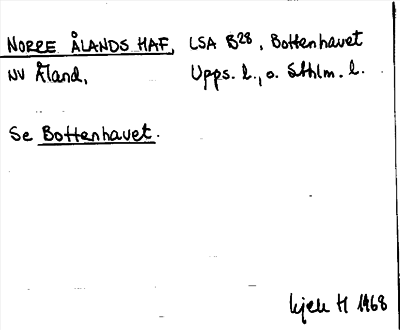 NORRE ÅLANDS HAF, LSA B28, Bottenhavet
NV Åland, Upps. l., o. Sthlm. l.
Se Bottenhavet.
H 1968